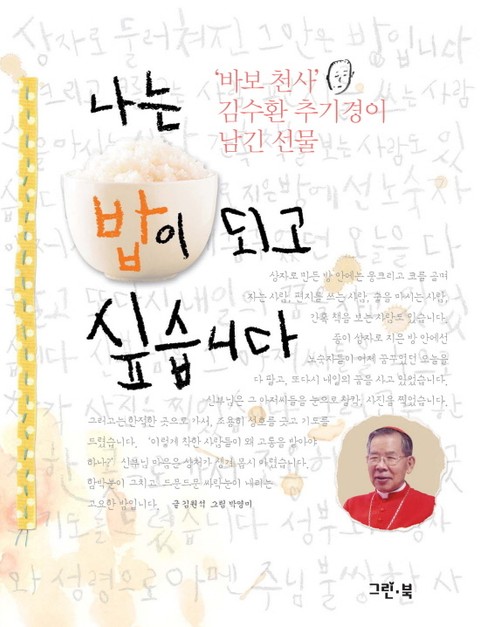 '바보 천사'
김수환 추기경이
남긴 선물
나는
밥이 되고
싶습니다
상자로 만든 방 안에는 웅크리고 코를 골며
자는 사람, 편지를 쓰는 사람, 술을 마시는 사람,
간혹 책을 보는 사람도 있습니다.
종이 상자로 지은 밤 안에선
노숙자들이 어제 꿈꾸었던 오늘을
다 팔고, 또다시 내일의 꿈을 사고 있었습니다.
신부님은 그 아저씨들을 눈으로 찰칵, 사진을 찍었습니다.
그러고는 한적한 곳으로 가서, 조용히 성호를 긋고 기도를
드렸습니다. '이렇게 착한 사람들이 왜 고통을 받아야
하나?' 신부님 마음은 상처가 생겨 몹시 아렸습니다.
함박눈이 그치고, 드문드문 싸락눈이 내리는
고요한 밤입니다. 글 김원석 그림 박영미
그린·북
상자로 둘러쳐진 그 안은 밤입니다
와 성령으로 아멘 주님 불쌍한 사